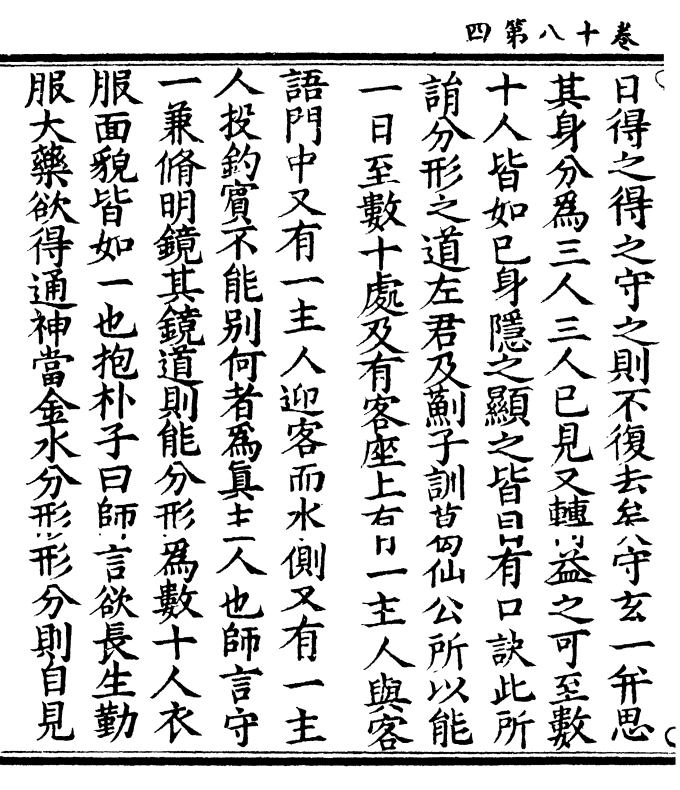 卷十八第四
日得之得之守之則不復去矣守玄一并思
其身分為三人三人已見又轉益之可至數
十人皆如已身隱之顯之皆自有口訣此所
謂分形之道左君及薊子訓葛仙公所以能
一日至數十處及有客座上有一主人與客
語門中又有一主人迎客而水側又有一主
人投釣賓不能别何者為真主人也師言守
一兼脩明鏡其鏡道則能分形為數十人衣
服面貌皆如一也抱朴子曰師言欲長生勤
服大藥欲得通神當金水分形形分則自見